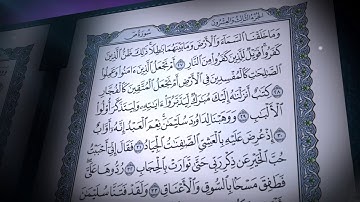 الجزء الثالث والعشرون سورة ص
وَمَا خَلَقْنَا السَّمَاءَ وَالْأَرْضَ وَمَا بَيْنَهُمَا بَاطِلًا ذَٰلِكَ ظَنُّ الَّذِينَ
كَفَرُوا فَوَيْلٌ لِّلَّذِينَ كَفَرُوا مِنَ النَّارِ ٢٧ أَمْ نَجْعَلُ الَّذِينَ ءَامَنُوا وَعَمِلُوا
الصَّالِحَاتِ كَالْمُفْسِدِينَ فِي الْأَرْضِ أَمْ نَجْعَلُ الْمُتَّقِينَ كَالْفُجَّارِ
٢٨ كِتَابٌ أَنزَلْنَاهُ إِلَيْكَ مُبَارَكٌ لِّيَدَّبَّرُوا ءَايَاتِهِ وَلِيَتَذَكَّرَ أُولُوا
الْأَلْبَابِ ٢٩ وَوَهَبْنَا لِدَاوُودَ سُلَيْمَانَ نِعْمَ الْعَبْدُ إِنَّهُ أَوَّابٌ
٣٠ إِذْ عُرِضَ عَلَيْهِ بِالْعَشِيِّ الصَّافِنَاتُ الْجِيَادُ ٣١ فَقَالَ إِنِّي أَحْبَبْتُ
حُبَّ الْخَيْرِ عَن ذِكْرِ رَبِّي حَتَّىٰ تَوَارَتْ بِالْحِجَابِ ٣٢ رُدُّوهَا عَلَيَّ
فَطَفِقَ مَسْحًا بِالسُّوقِ وَالْأَعْنَاقِ ٣٣ وَلَقَدْ فَتَنَّا سُلَيْمَانَ